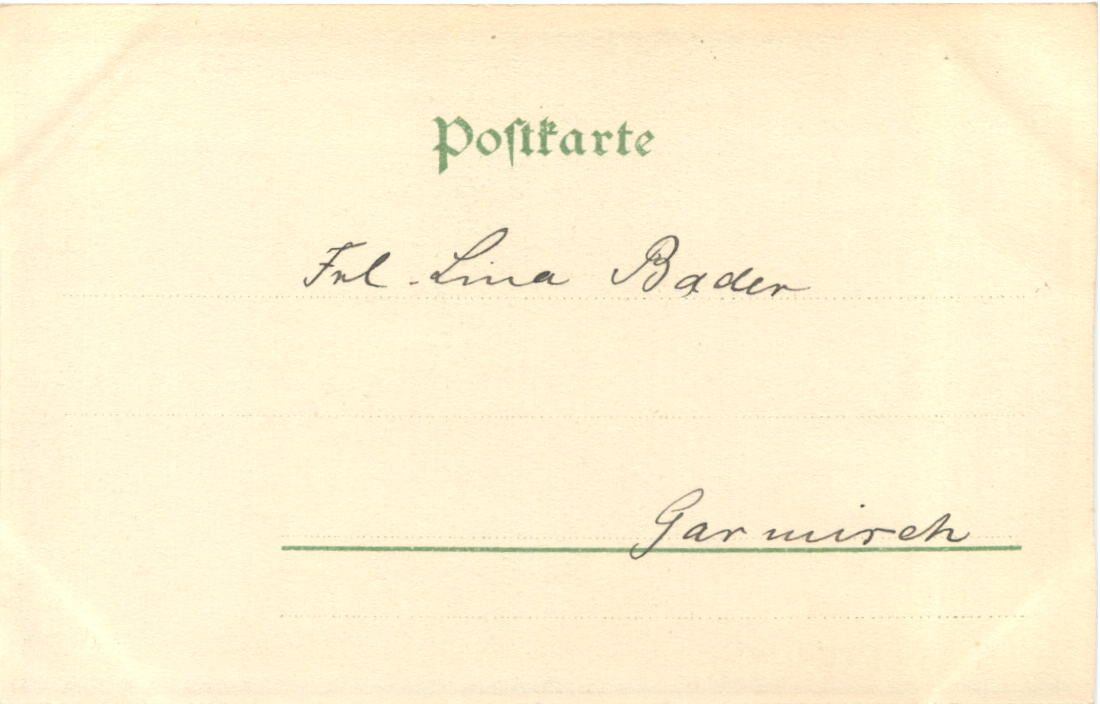 Postkarte
Frl. Lina Bader
Garmisch